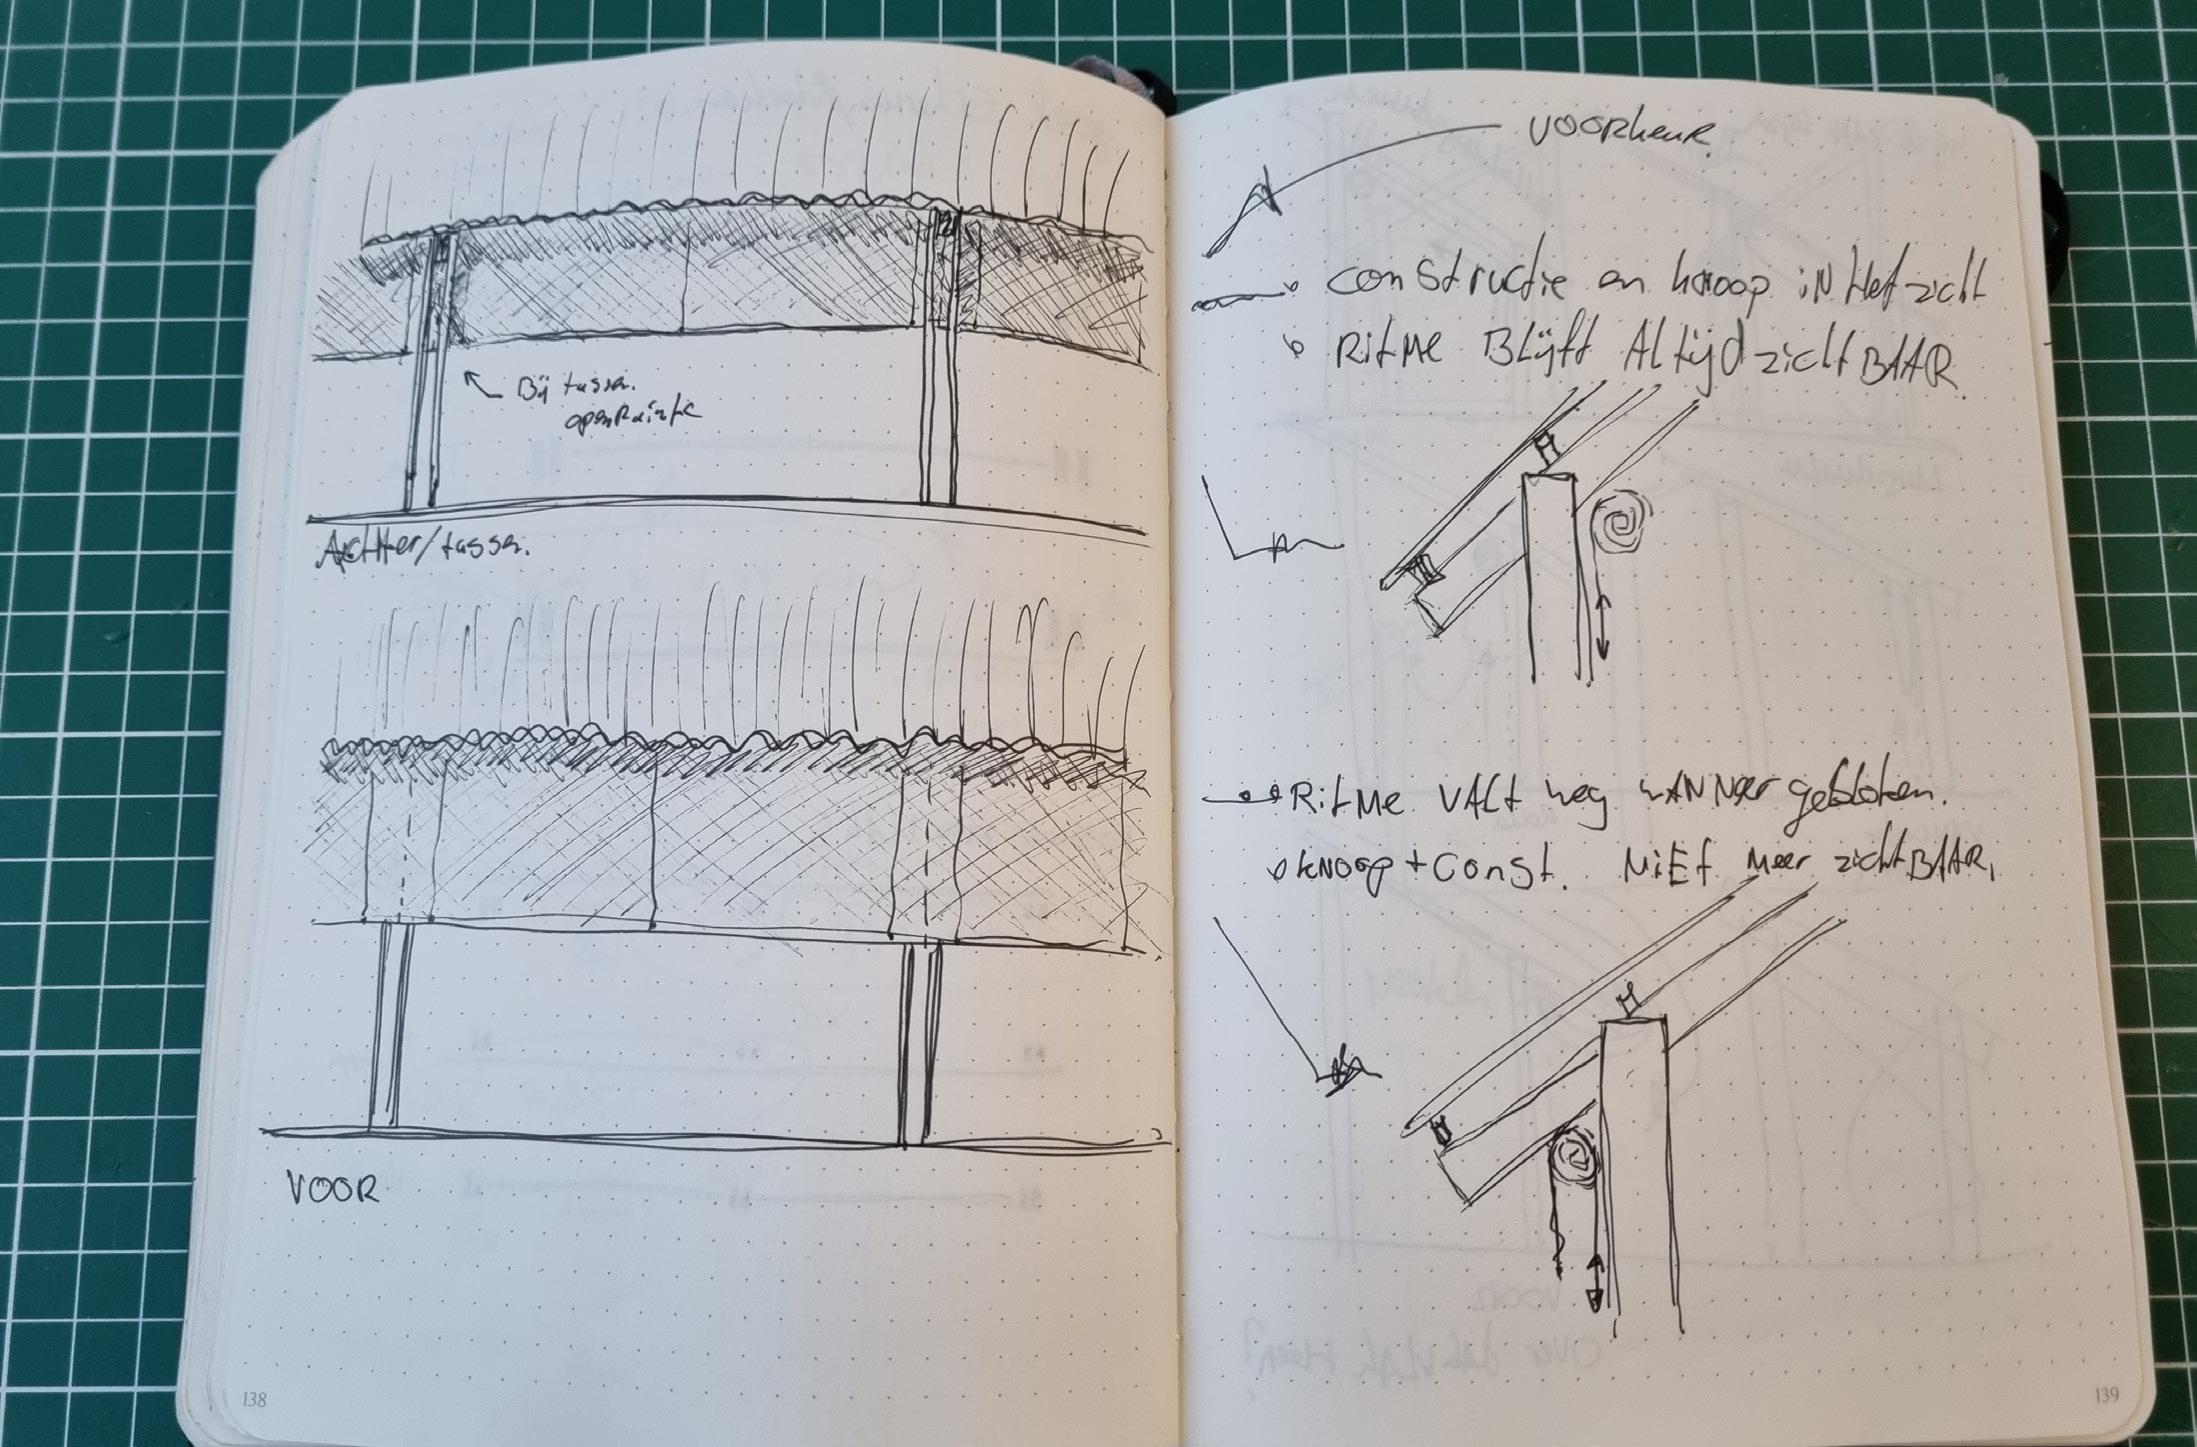 Bij tussen.
open Ruimte
Achter/tussen.
VOOR
138
VOORkeuR.
constructie en knoop iN Het zicht
RitMe Blijft Altijd zichtBAAR.
RitMe VAlt weg wANNeer gesloten.
kNoop + Const. NiEt meer zichtBAAR.
139